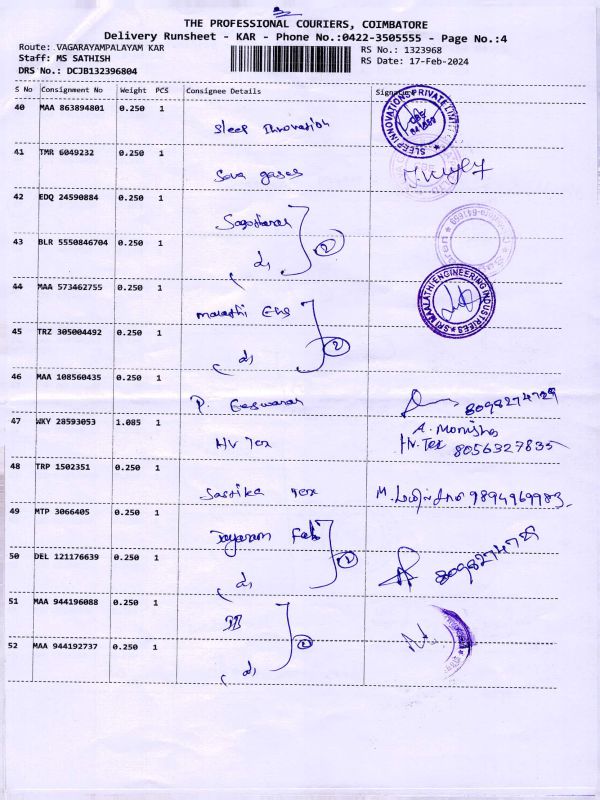 THE PROFESSIONAL COURIERS, COIMBATORE
Delivery Runsheet - KAR - Phone No.:0422-3505555 - Page No.:4
Route: VAGARAYAMPALAYAM KAR
RS No.: 1323968
Staff: MS SATHISH
RS Date: 17-Feb-2024
DRS No.: DCJB132396804
S No Consignment No Weight PCS Consignee Details Signature
40 MAA 863894801 0.250 1
Sleep Innovation
SLEEP INNOVATIONS PRIVATE LIMITED
41 TMR 6049232 0.250 1
gases
42 EDQ 24590884 0.250 1
2
43 BLR 5550846704 0.250 1
44 MAA 573462755 0.250 1
SRI MAALATHI ENGINEERING INDUSTRIES
Eng
45 TRZ 305004492 0.250 1
2
46 MAA 108560435 0.250 1
P. Eeswaran
8098274729
47 WKY 28593053 1.085 1
A. Monisha
HV Tex
Hv. Tex 8056327835
48 TRP 1502351 0.250 1
Sastika Tex
M. 9894969983
49 MTP 3066405 0.250 1
Jayaram Fab
2
50 DEL 121176639 0.250 1
8098274729
51 MAA 944196088 0.250 1
2
52 MAA 944192737 0.250 1